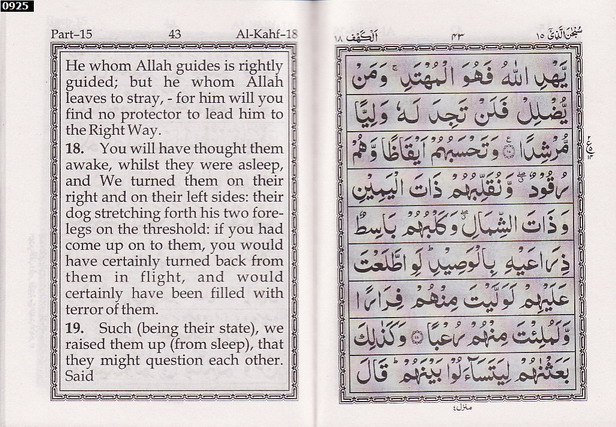 0925
Part–15 43 Al-Kahf–18
He whom Allah guides is rightly
guided; but he whom Allah
leaves to stray, - for him will you
find no protector to lead him to
the Right Way.
18. You will have thought them
awake, whilst they were asleep,
and We turned them on their
right and on their left sides: their
dog stretching forth his two fore-
legs on the threshold: if you had
come up on to them, you would
have certainly turned back from
them in flight, and would
certainly have been filled with
terror of them.
19. Such (being their state), we
raised them up (from sleep), that
they might question each other.
Said
سُبْحٰنَ الَّذِیْۤ ۱۵ ۴۳ اَلْكَهْف ۱۸
یَّهْدِ اللّٰهُ فَهُوَ الْمُهْتَدِ ۚ وَمَنْ
یُّضْلِلْ فَلَنْ تَجِدَ لَهٗ وَلِیًّا
مُّرْشِدًا ۝۱۷ وَتَحْسَبُهُمْ اَیْقَاظًا وَّهُمْ
رُقُوْدٌ ۖ وَّنُقَلِّبُهُمْ ذَاتَ الْیَمِیْنِ
وَذَاتَ الشِّمَالِ ۖ وَكَلْبُهُمْ بَاسِطٌ
ذِرَاعَیْهِ بِالْوَصِیْدِ ؕ لَوِ اطَّلَعْتَ
عَلَیْهِمْ لَوَلَّیْتَ مِنْهُمْ فِرَارًا
وَّلَمُلِئْتَ مِنْهُمْ رُعْبًا ۝۱۸ وَكَذٰلِكَ
بَعَثْنٰهُمْ لِیَتَسَآءَلُوْا بَیْنَهُمْ ؕ قَالَ
منزل ۴